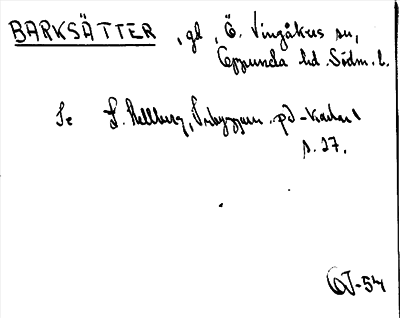 BARKSÄTTER, gd, Ö. Vingåkers sn,
Oppunda hd. Södm. l.
Se L. Hellberg, på -Karleby
s. 27.
OJ-54